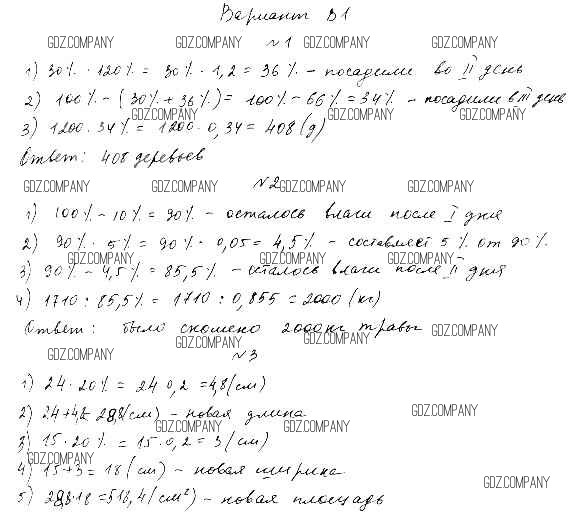 Вариант В1
GDZ.COMPANY GDZ.COMPANY №1 GDZ.COMPANY GDZ.COMPANY
1) 30% · 120% = 30% · 1,2 = 36% - посадили во II день
2) 100% - (30% + 36%) = 100% - 66% = 34% - посадили в III день
GDZ.COMPANY GDZ.COMPANY GDZ.COMPANY
3) 1200 · 34% = 1200 · 0,34 = 408 (д)
Ответ: 408 деревьев
GDZ.COMPANY GDZ.COMPANY №2 GDZ.COMPANY GDZ.COMPANY
1) 100% - 10% = 90% - осталось влаги после I дня
2) 90% · 5% = 90% · 0,05 = 4,5% - составляет 5% от 90%
GDZ.COMPANY GDZ.COMPANY GDZ.COMPANY
3) 90% - 4,5% = 85,5% - осталось влаги после II дня
4) 1710 : 85,5% = 1710 : 0,855 = 2000 (кг)
Ответ: было скошено 2000 кг травы GDZ.COMPANY
GDZ.COMPANY GDZ.COMPANY
GDZ.COMPANY №3
1) 24 · 20% = 24 0,2 = 4,8 (см)
2) 24 + 4,8 = 28,8 (см) - новая длина GDZ.COMPANY
GDZ.COMPANY GDZ.COMPANY
3) 15 · 20% = 15 · 0,2 = 3 (см)
GDZ.COMPANY
4) 15 + 3 = 18 (см) - новая ширина
GDZ.COMPANY
5) 28,8 · 18 = 518,4 (см²) - новая площадь